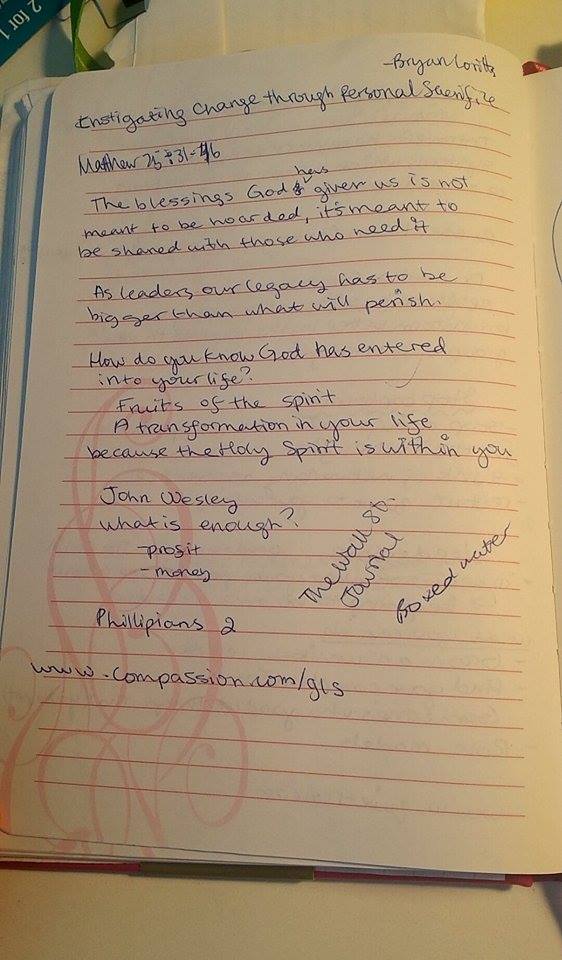 2 for 1
-Bryan Loritts
Instigating Change through Personal Sacrifize
Matthew 25:31-46
has
The blessings God given us is not
meant to be hoarded, it's meant to
be shared with those who need it
As leaders our legacy has to be
bigger than what will perish.
How do you know God has entered
into your life?
Fruits of the spirit
A transformation in your life
because the Holy Spirit is within you
John Wesley
what is enough?
-profit
-money
The Wall St.
Journal
Boxed water
Phillipians 2
www.compassion.com/gls